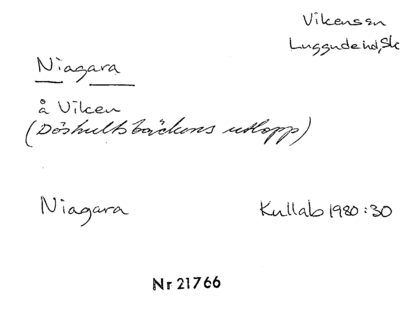 Vikens sn
Luggude hd, Sk
Niagara
å Viken
(Döshultsbäckens utlopp)
Niagara
Kullab 1980:30
Nr 21766